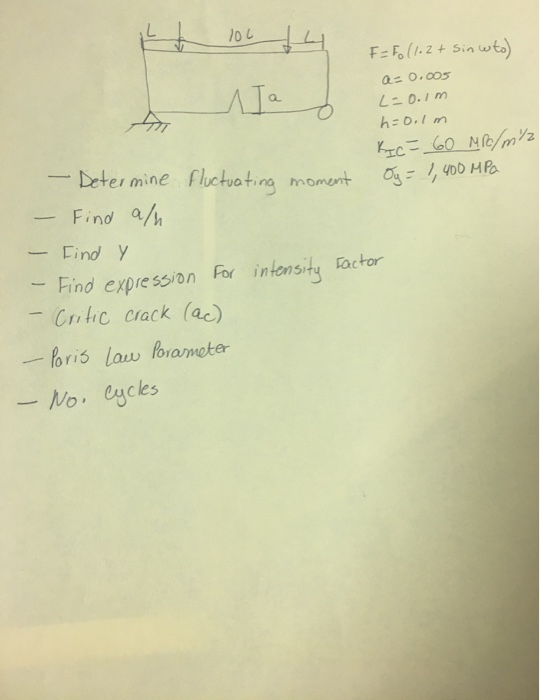 L 10L L
a
F=F₀(1.2+ sin ωto)
a= 0.005
L= 0.1 m
h=0.1 m
KIC= 60 MPa/m^1/2
σy= 1,400 MPa
— Determine fluctuating moment
— Find a/h
— Find Y
— Find expression For intensity Factor
— Critic crack (ac)
— Paris Law Parameter
— No. Cycles